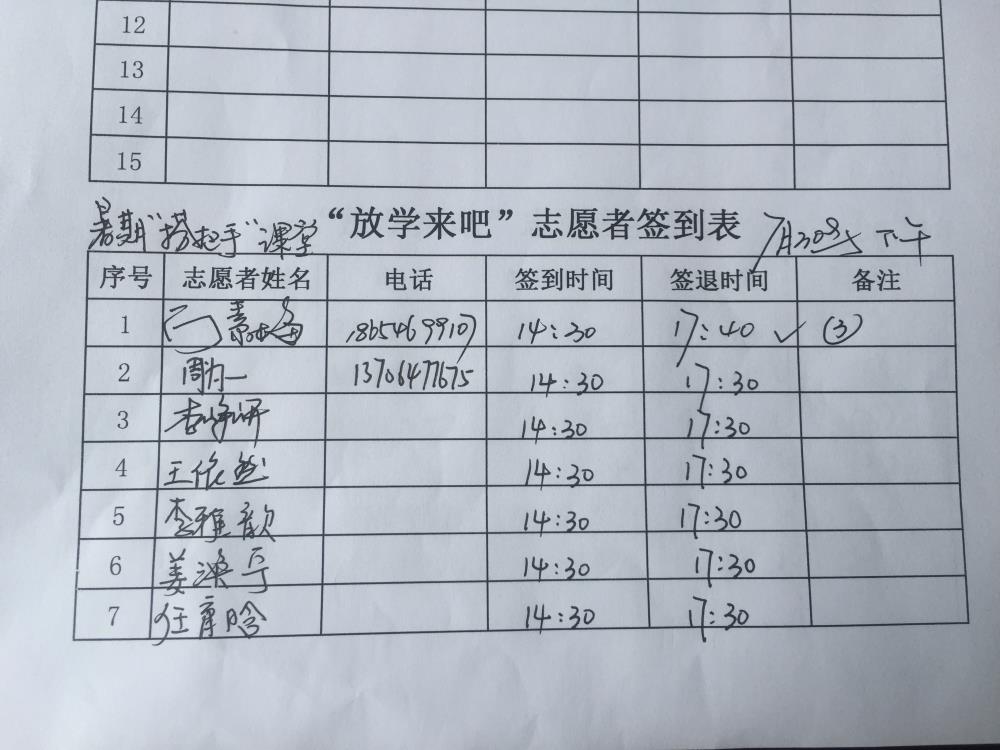 12
13
14
15
暑期"手把手"课堂 "放学来吧"志愿者签到表 7月30日 下午
序号 志愿者姓名 电话 签到时间 签退时间 备注
1 18654699107 14:30 17:40 ✓ (3)
2 周为一 13706477675 14:30 17:30
3 李 14:30 17:30
4 王依然 14:30 17:30
5 李雅歆 14:30 17:30
6 姜 14:30 17:30
7 任 晗 14:30 17:30